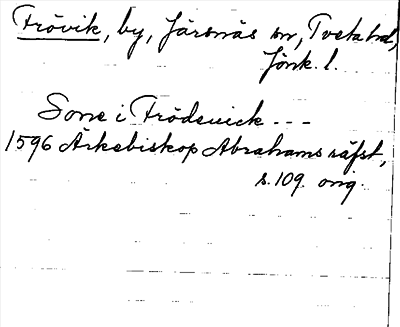 Frövik, by, Järsnäs sn, Tveta hd,
Jönk. l.
Sone i Frödeuick - - -
1596 Ärkebiskop Abrahams räfst,
s. 109. orig.